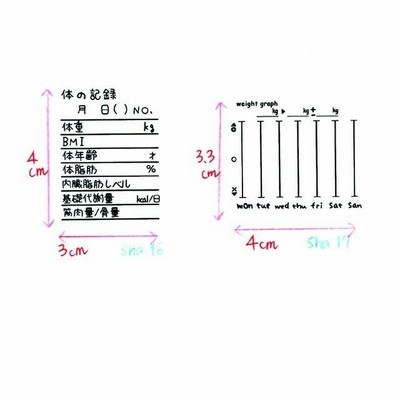 体の記録
月 日( ) NO.
体重 kg
BMI
体年齢 才
体脂肪 %
内臓脂肪レベル
基礎代謝量 kcal/日
筋肉量/骨量
4cm
3cm
sha 16
weight graph
kg ▶ kg ± kg
3.3cm
mon tue wed thu fri sat sun
4cm
sha 17